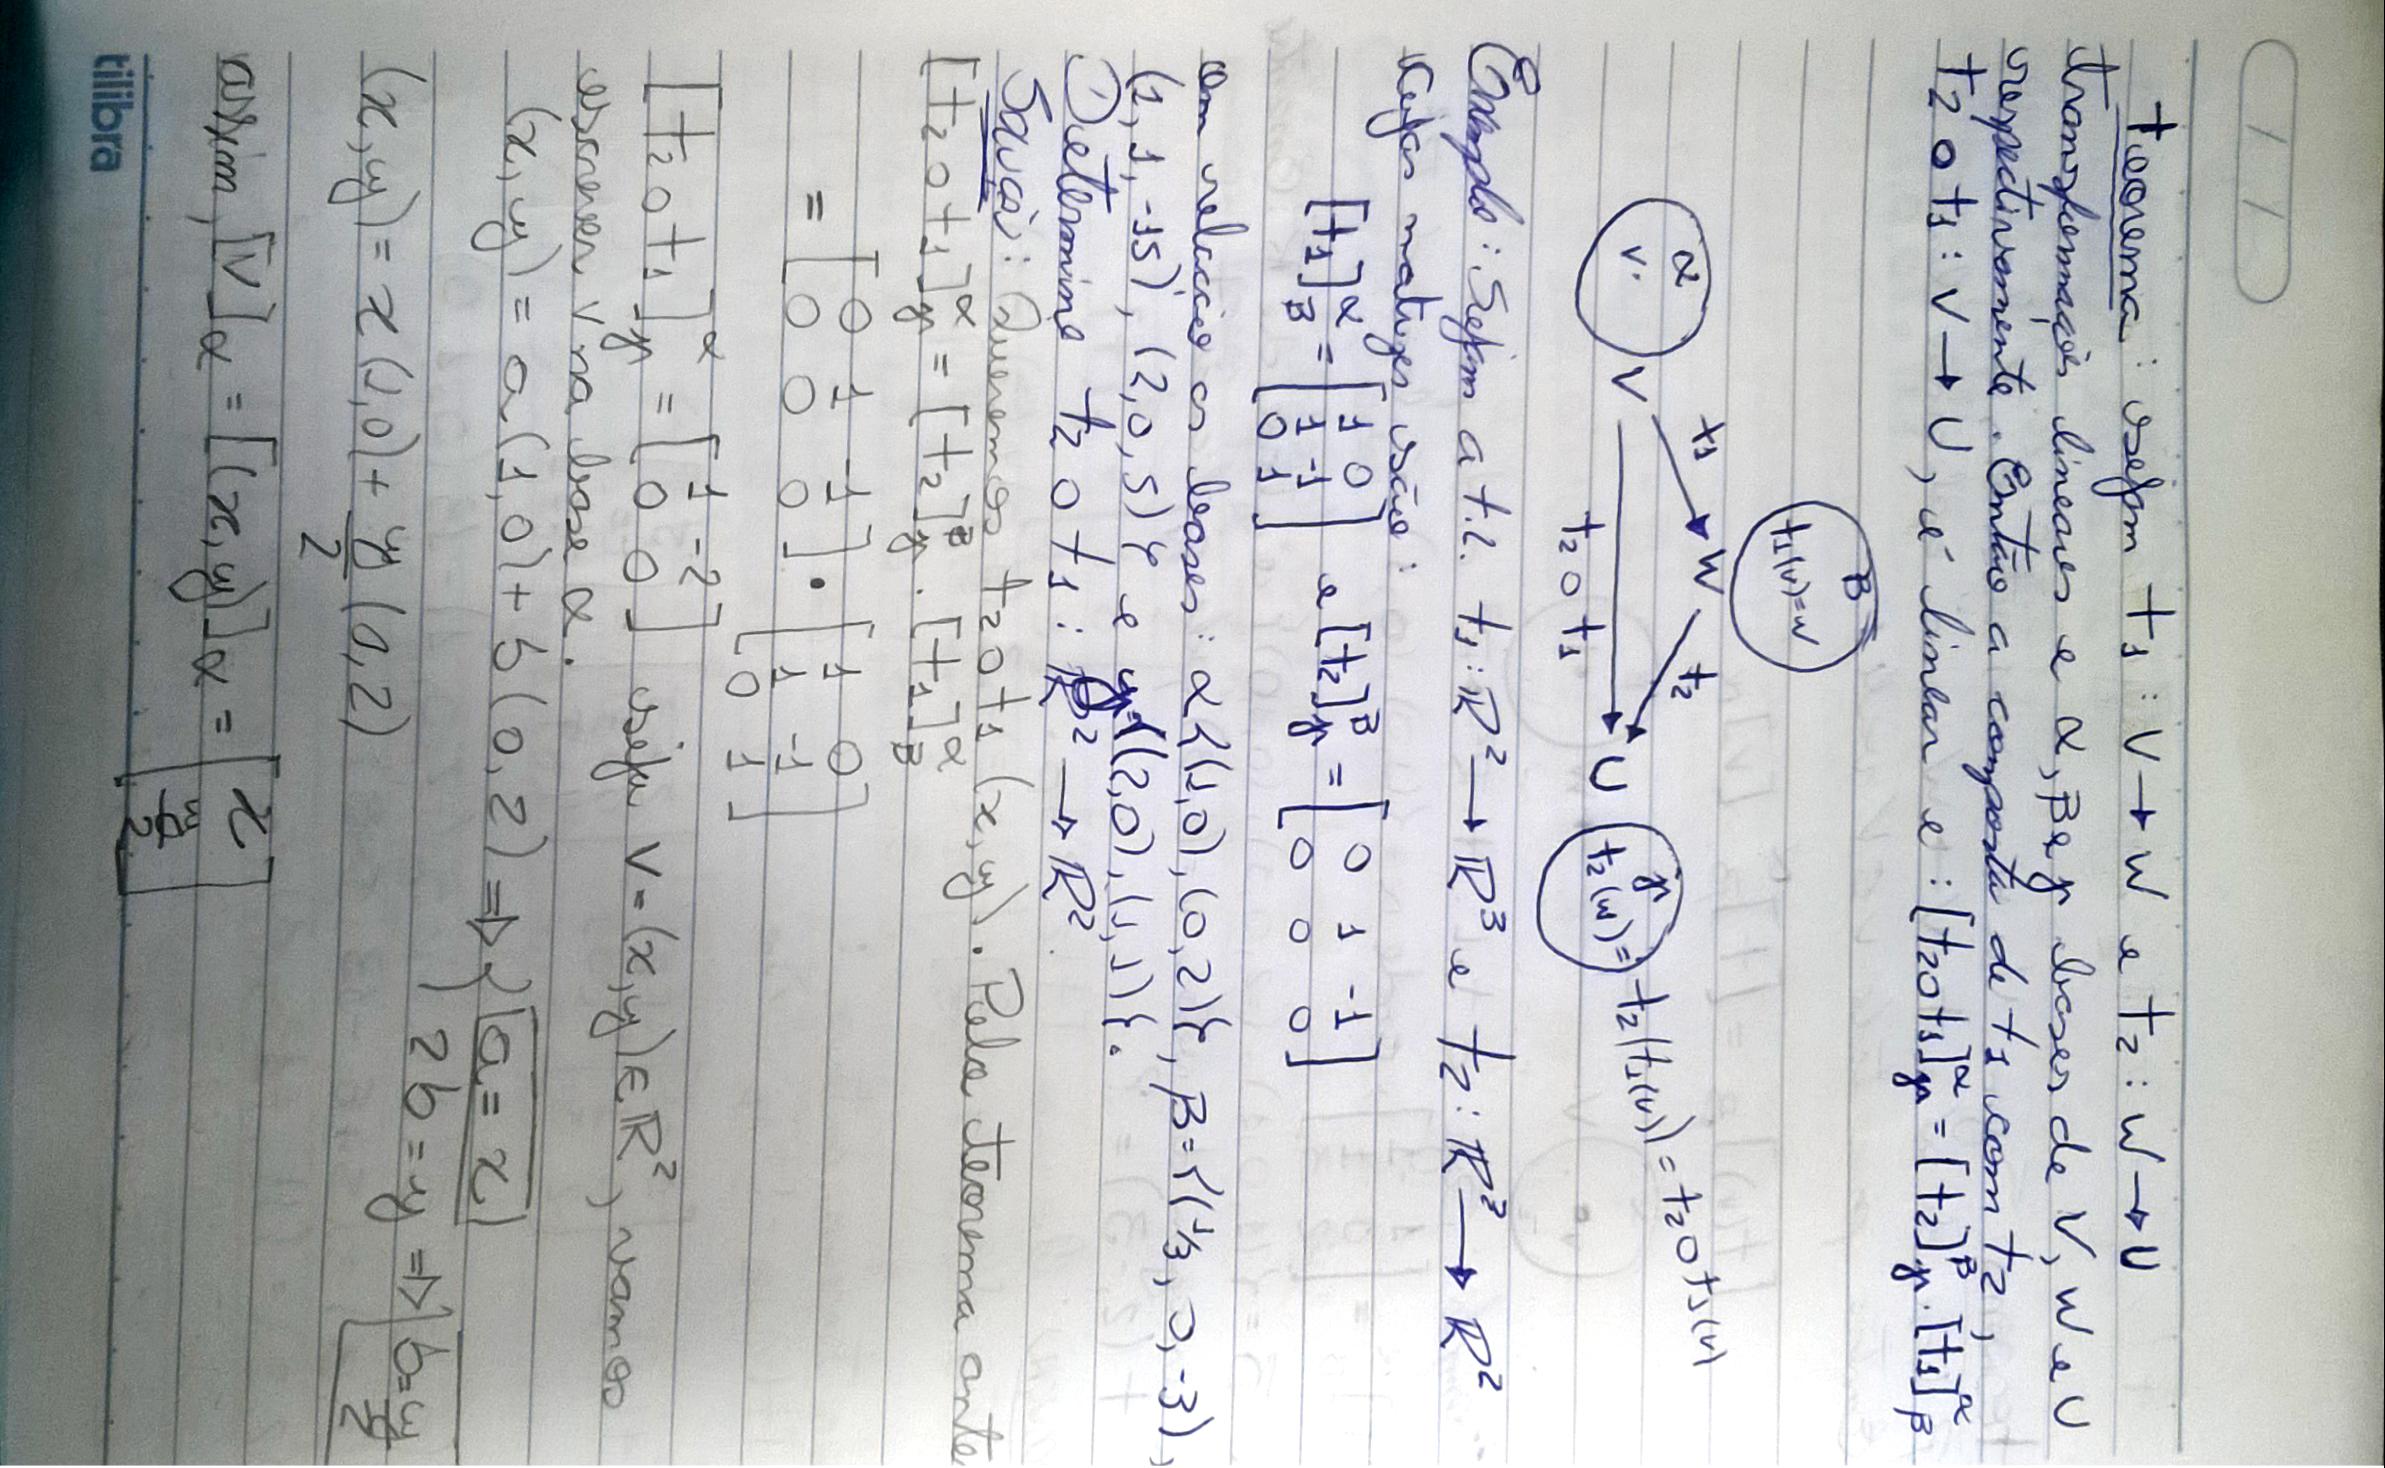 Teorema: sejam t1 : V → W e t2 : W → U
transformações lineares e α, β e γ bases de V, W e U
respectivamente. Então a composta de t1 com t2,
t2 o t1 : V → U, é linear e : [t2 o t1]^α_γ = [t2]^β_γ . [t1]^α_β
β
t1(v)=w
α
v.
V
t1
W
t2
t2 o t1
U
γ
t2(w) = t2(t1(v)) = t2 o t1(v)
Exemplo: Sejam a t.l. t1 : R² → R³ e t2 : R³ → R²
cujas matrizes são:
[t1]^α_β = [1 0; 1 -1; 0 1] e [t2]^β_γ = [0 1 -1; 0 0 0]
em relação as bases: α{(1,0), (0,2)}, β={(1/3, 0, -3),
(1, 1, -15), (2,0,5)} e γ={(2,0), (1,1)}.
Determine t2 o t1 : R² → R².
Sauçõ: Queremos t2 o t1 (x,y). Pelo teorema ante
[t2 o t1]^α_γ = [t2]^β_γ . [t1]^α_β
= [0 1 -1; 0 0 0] . [1 0; 1 -1; 0 1]
[t2 o t1]^α_γ = [1 -2; 0 0] seja V=(x,y) ∈ R², vamos
escrever V na base α.
(x,y) = a(1,0) + b(0,2) => { a = x
2b = y => b = y/2
(x,y) = x(1,0) + y/2 (0,2)
assim, [V]α = [(x,y)]α = [x; y/2]
tilibra